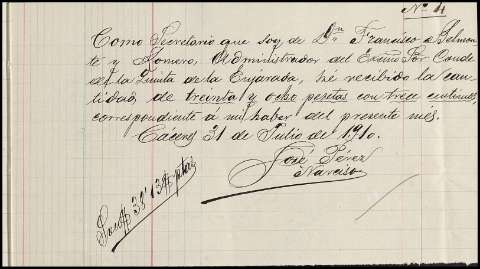 Nº 4
Como Secretario que soy de Dn. Francisco de Belmon-
te y Romero, Administrador del Exmo Sor Conde
de la Quinta de la Enjarada, hé recibido la can-
tidad de treinta y ocho pesetas con trece centimos,
correspondiente á mi haber del presente mes.
Cáceres 31 de Julio de 1910.
José Pérez
Narciso
Son 38'13 ptas